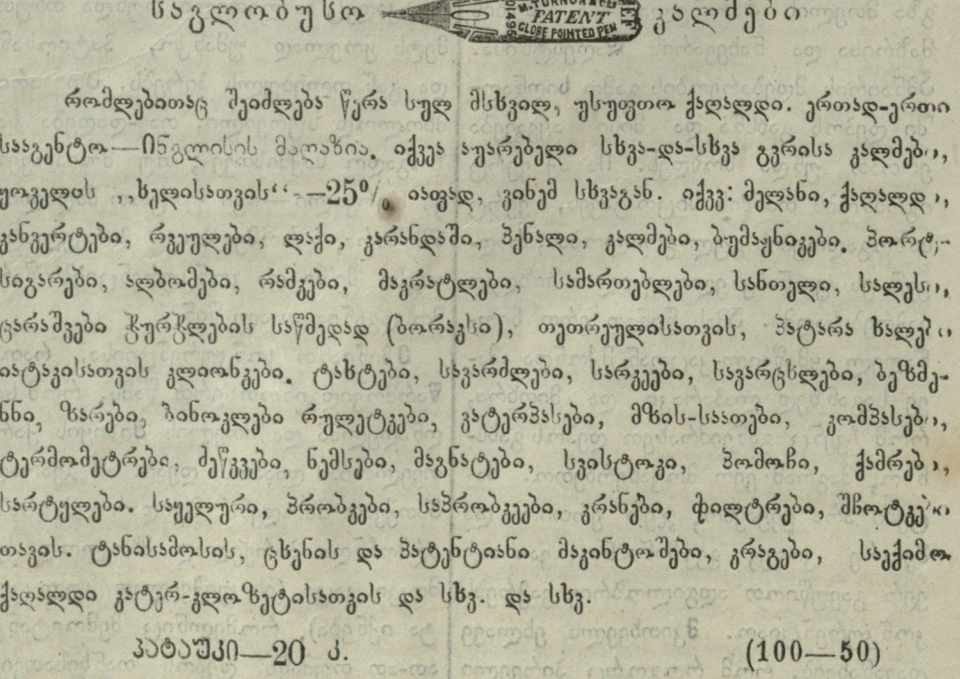 საგლობუსო M. TURNOR & Co PATENT GLOBE POINTED PEN კალმები
რომლებითაც შეიძლება წერა სულ მსხვილ, უსუფთო ქაღალდი. ერთად-ერთი
სააგენტო—ინგლისის მაღაზია. იქვეა აუარებელი სხვა-და-სხვა გვრისა კალმები,
ყოველის „ხელისათვის“ —25% იაფად, ვინემ სხვაგან. იქვე: მელანი, ქაღალდი,
კანვერტები, რვეულები, ლაქი, კარანდაში, პენალი, კალმები, ბუმაჟნიკები. პორტ-
სიგარები, ალბომები, რამკები, მაკრატლები, სამართებლები, სანთელი, სალესი,
ცარაშვები ჭურჭლების საწმედად (ბორაკსი), თეთრეულისათვის, პატარა ხალები
იატაკისათვის კლიონკები. ტახტები, სავარძლები, სარკეები, სავარცხლები, ბეზმე-
ნნი, ზარები, ბინოკლები რულეტკები, ვატერპასები, მზის-საათები, კომპასები,
ტერმომეტრები, ძეწკვები, ნემსები, მაგნატები, სვისტოკი, პომოჩი, ქამრები,
სარტყლები. საყელური, პრობკები, საპრობკეები, კრანები, ფილტრები, შჩოტკები
თავის. ტანისამოსის, ცხენის და პატენტიანი მაკინტოშები, კრაგები, საექიმო
ქაღალდი ვატერ-კლოზეტისათვის და სხვ. და სხვ.
პატაუკი—20 კ. (100—50)